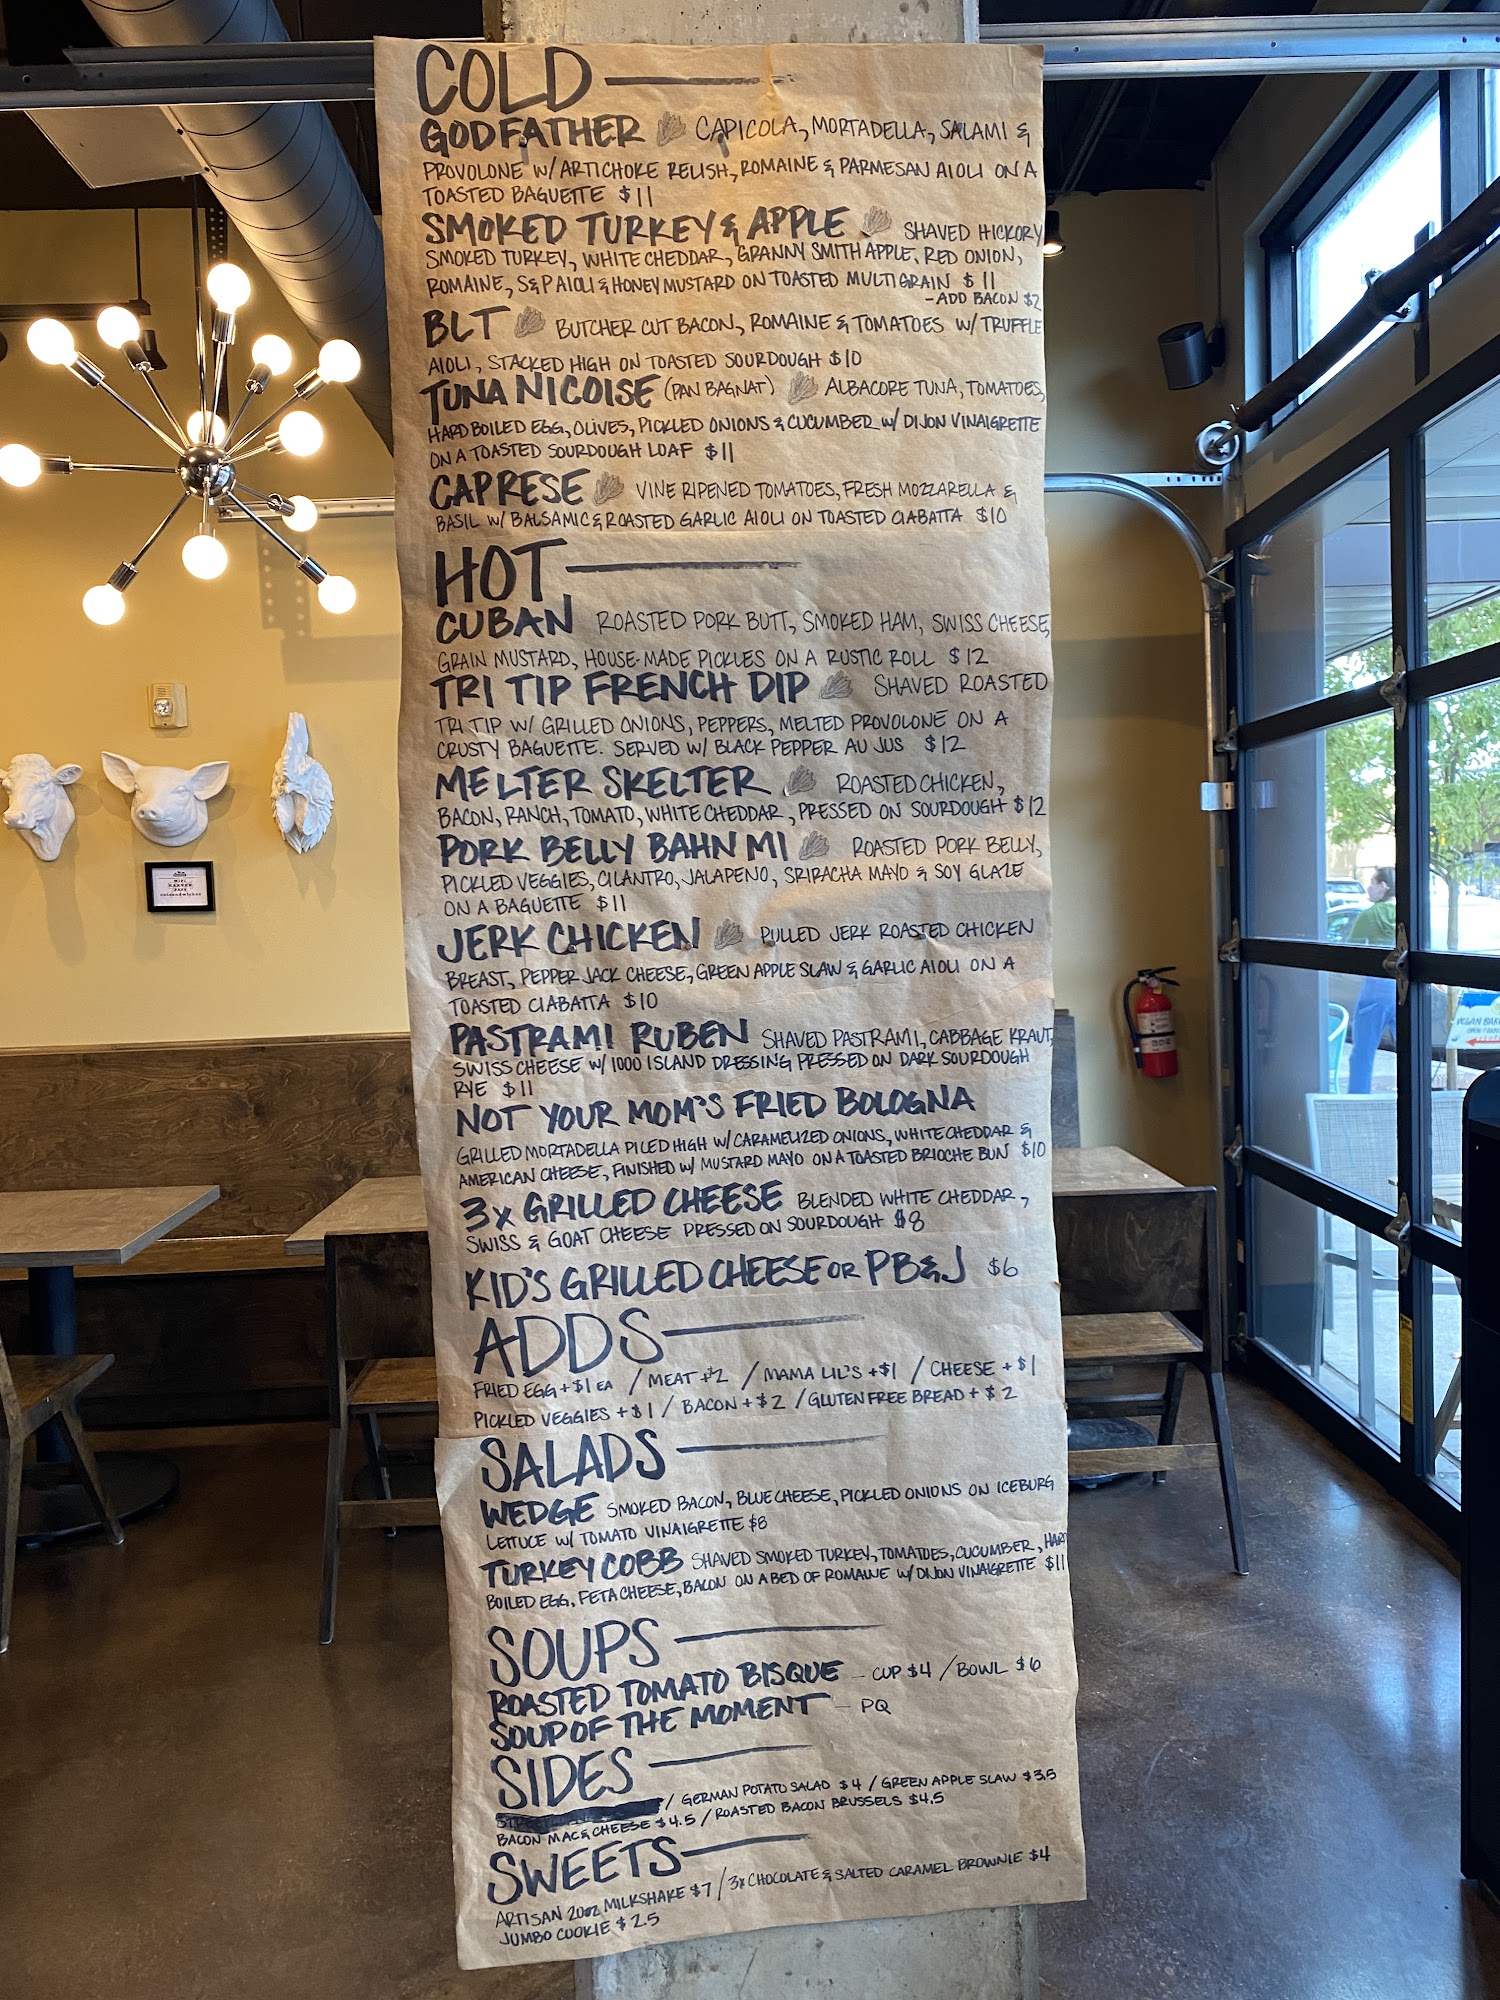 COLD
GODFATHER CAPICOLA, MORTADELLA, SALAMI &
PROVOLONE W/ ARTICHOKE RELISH, ROMAINE & PARMESAN AIOLI ON A
TOASTED BAGUETTE $11
SMOKED TURKEY & APPLE SHAVED HICKORY
SMOKED TURKEY, WHITE CHEDDAR, GRANNY SMITH APPLE, RED ONION,
ROMAINE, S&P AIOLI & HONEY MUSTARD ON TOASTED MULTIGRAIN $11
-ADD BACON $2
BLT BUTCHER CUT BACON, ROMAINE & TOMATOES W/ TRUFFLE
AIOLI, STACKED HIGH ON TOASTED SOURDOUGH $10
TUNA NICOISE (PAN BAGNAT) ALBACORE TUNA, TOMATOES,
HARD BOILED EGG, OLIVES, PICKLED ONIONS & CUCUMBER W/ DIJON VINAIGRETTE
ON A TOASTED SOURDOUGH LOAF $11
CAPRESE VINE RIPENED TOMATOES, FRESH MOZZARELLA &
BASIL W/ BALSAMIC & ROASTED GARLIC AIOLI ON TOASTED CIABATTA $10
HOT
CUBAN ROASTED PORK BUTT, SMOKED HAM, SWISS CHEESE,
GRAIN MUSTARD, HOUSE-MADE PICKLES ON A RUSTIC ROLL $12
TRI TIP FRENCH DIP SHAVED ROASTED
TRI TIP W/ GRILLED ONIONS, PEPPERS, MELTED PROVOLONE ON A
CRUSTY BAGUETTE. SERVED W/ BLACK PEPPER AU JUS $12
MELTER SKELTER ROASTED CHICKEN,
BACON, RANCH, TOMATO, WHITE CHEDDAR, PRESSED ON SOURDOUGH $12
PORK BELLY BAHN MI ROASTED PORK BELLY,
PICKLED VEGGIES, CILANTRO, JALAPENO, SRIRACHA MAYO & SOY GLAZE
ON A BAGUETTE $11
JERK CHICKEN PULLED JERK ROASTED CHICKEN
BREAST, PEPPER JACK CHEESE, GREEN APPLE SLAW & GARLIC AIOLI ON A
TOASTED CIABATTA $10
PASTRAMI RUBEN SHAVED PASTRAMI, CABBAGE KRAUT,
SWISS CHEESE W/ 1000 ISLAND DRESSING PRESSED ON DARK SOURDOUGH
RYE $11
NOT YOUR MOM'S FRIED BOLOGNA
GRILLED MORTADELLA PILED HIGH W/ CARAMELIZED ONIONS, WHITE CHEDDAR &
AMERICAN CHEESE, FINISHED W/ MUSTARD MAYO ON A TOASTED BRIOCHE BUN $10
3X GRILLED CHEESE BLENDED WHITE CHEDDAR,
SWISS & GOAT CHEESE PRESSED ON SOURDOUGH $8
KID'S GRILLED CHEESE OR PB&J $6
ADDS
FRIED EGG +$1 EA / MEAT +$2 / MAMA LIL'S +$1 / CHEESE +$1
PICKLED VEGGIES +$1 / BACON +$2 / GLUTEN FREE BREAD +$2
SALADS
WEDGE SMOKED BACON, BLUE CHEESE, PICKLED ONIONS ON ICEBURG
LETTUCE W/ TOMATO VINAIGRETTE $8
TURKEY COBB SHAVED SMOKED TURKEY, TOMATOES, CUCUMBER, HARD
BOILED EGG, FETA CHEESE, BACON ON A BED OF ROMAINE W/ DIJON VINAIGRETTE $11
SOUPS
ROASTED TOMATO BISQUE - CUP $4 / BOWL $6
SOUP OF THE MOMENT - PQ
SIDES
/ GERMAN POTATO SALAD $4 / GREEN APPLE SLAW $3.5
BACON MAC & CHEESE $4.5 / ROASTED BACON BRUSSELS $4.5
SWEETS
ARTISAN 20OZ MILKSHAKE $7 / 3X CHOCOLATE & SALTED CARAMEL BROWNIE $4
JUMBO COOKIE $2.5